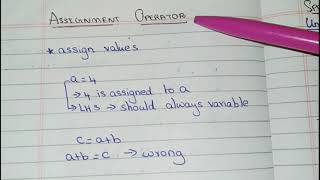 ASSIGNMENT OPERATOR
* assign values
a=4
→ 4 is assigned to a
→ LHS → should always variable
c = a+b
a+b = c → wrong